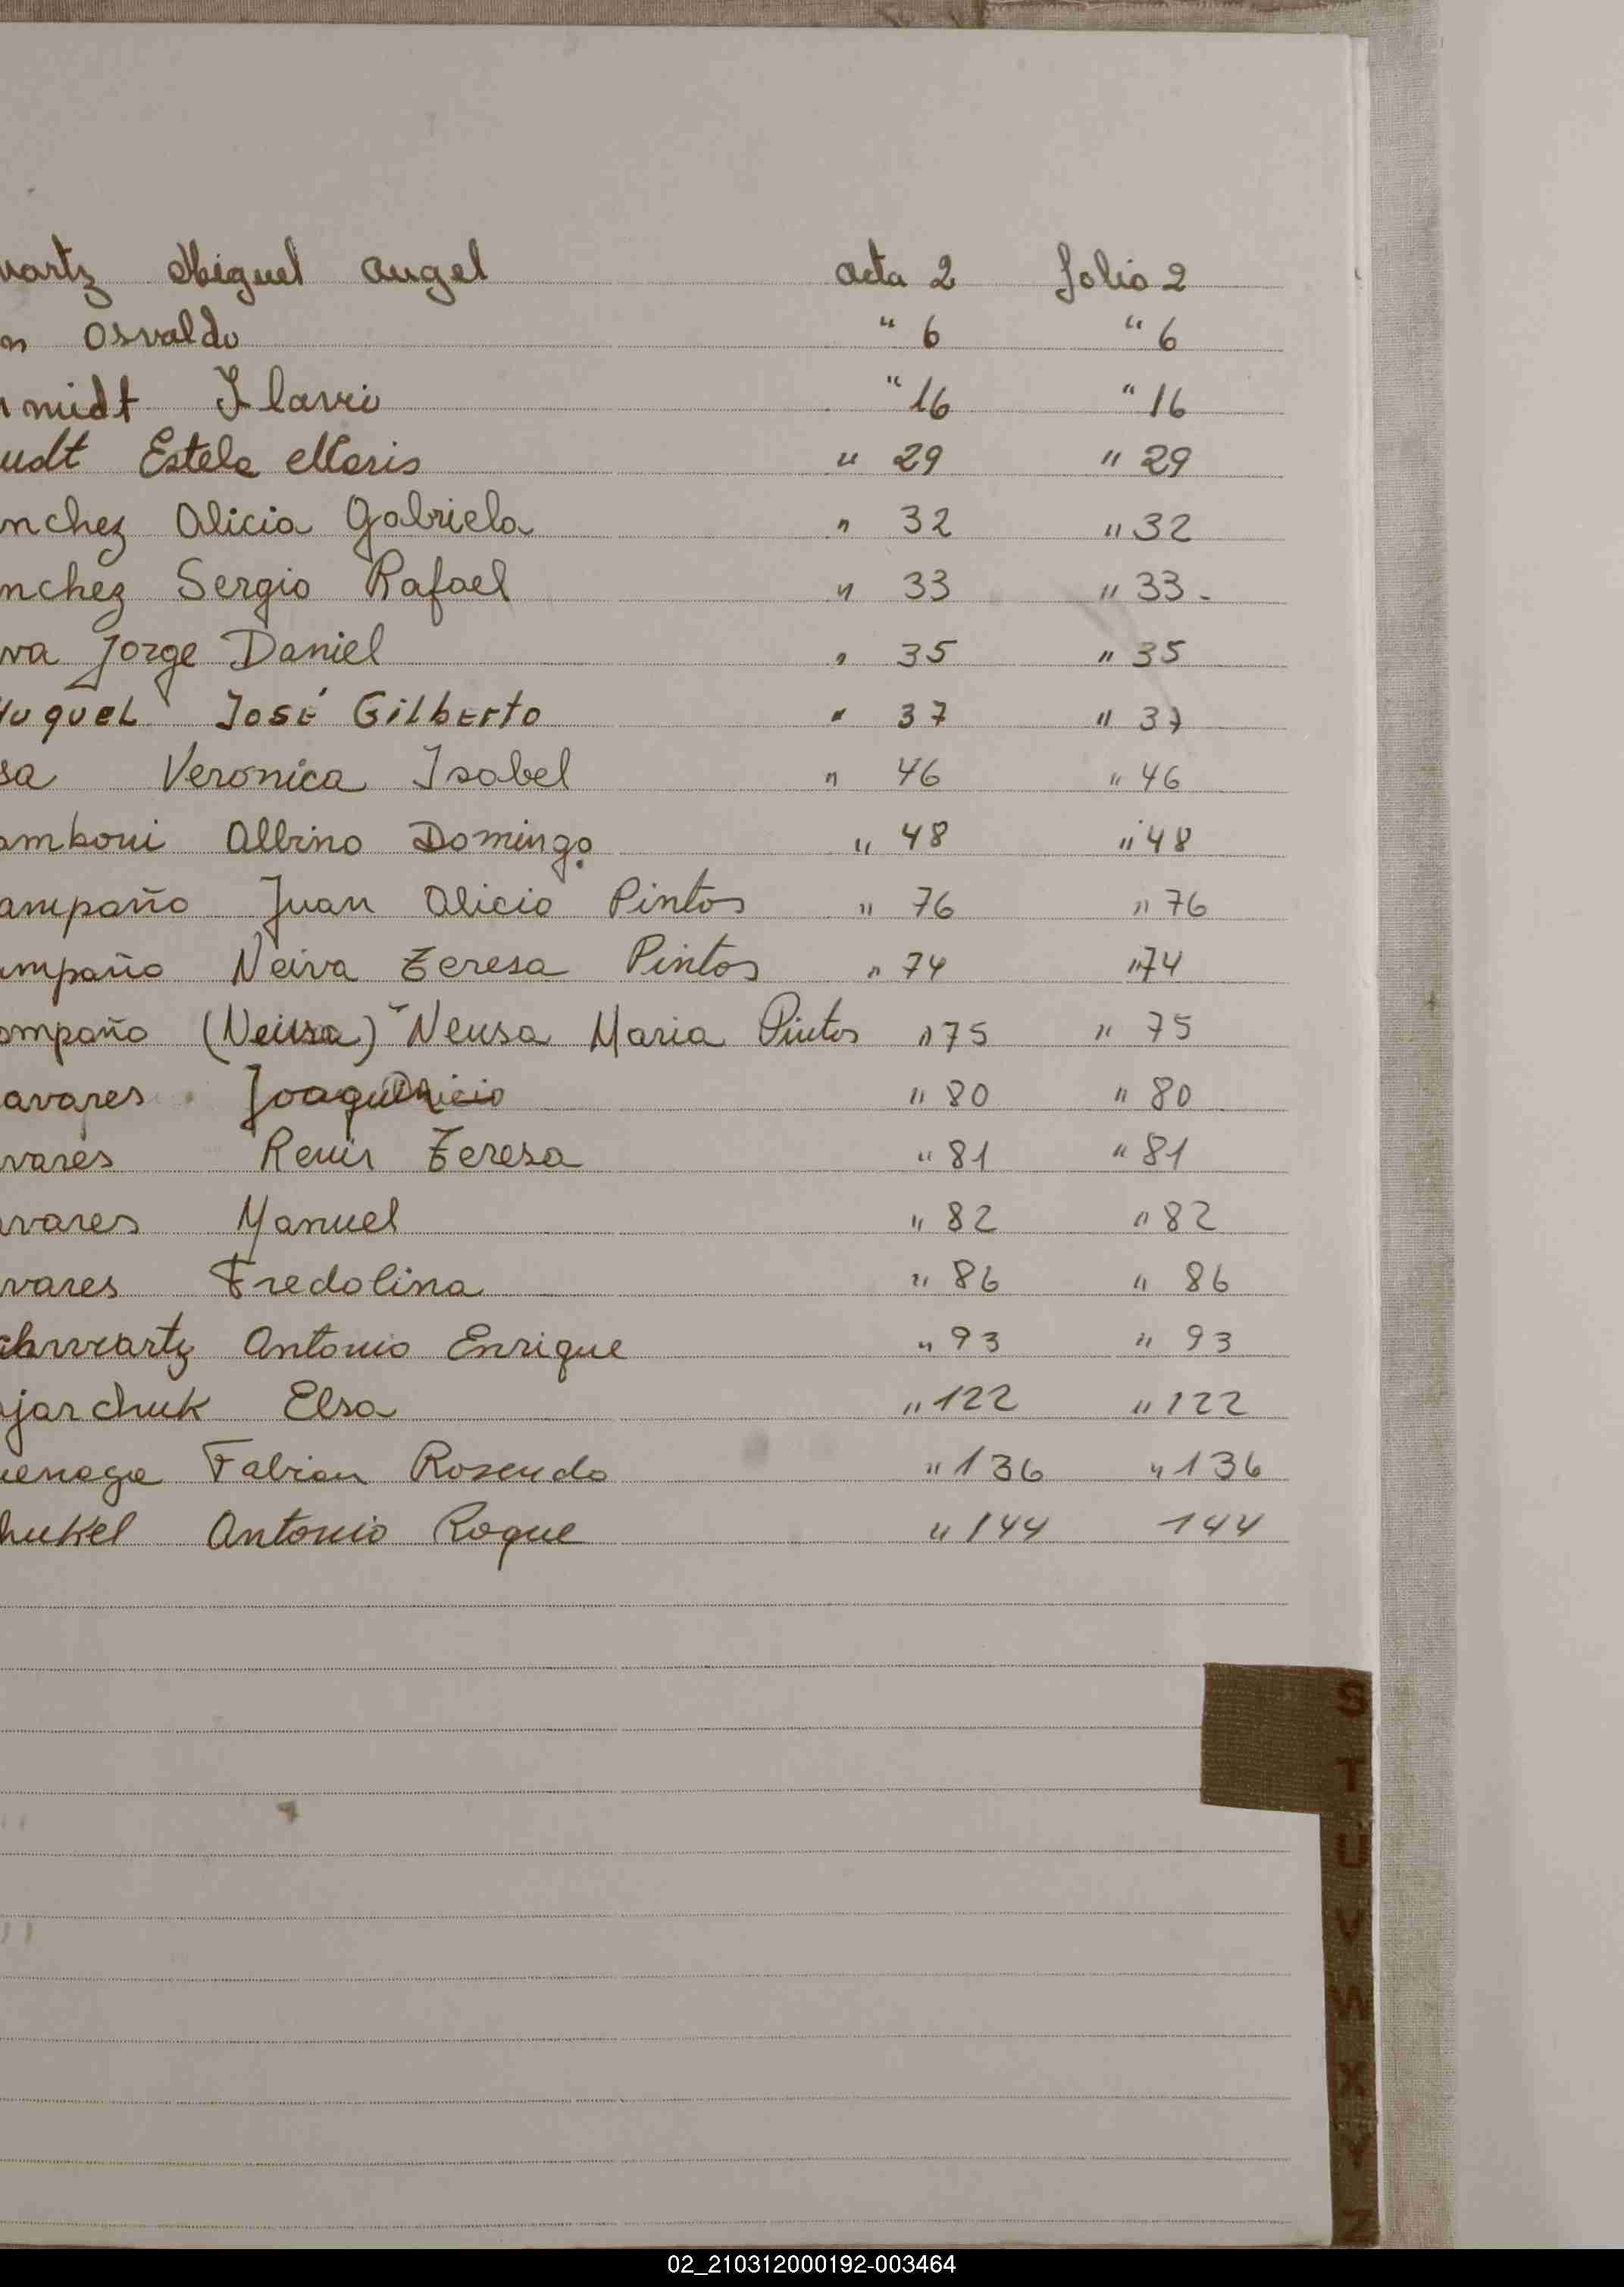 wartz Miguel Angel acta 2 folio 2
n Osvaldo " 6 " 6
midt Ilario " 16 " 16
udt Estela Maris " 29 " 29
nchez Alicia Gabriela " 32 " 32
nchez Sergio Rafael " 33 " 33 -
va Jorge Daniel " 35 " 35
uquel José Gilberto " 37 " 37
sa Veronica Isabel " 46 " 46
amboni Albino Domingo " 48 " 48
ampaño Juan Alicio Pintos " 76 " 76
mpaño Neiva Teresa Pintos " 74 " 74
ompaño (Neiusa) Neusa Maria Pintos " 75 " 75
avares " 80 " 80
vares Teresa " 81 " 81
vares Manuel " 82 " 82
vares Fredolina " 86 " 86
chwartz Antonio Enrique " 93 " 93
jarchuk Elsa " 122 " 122
Fabian Rosendo " 136 " 136
hukel Antonio Roque " 144 144
S
T
U
V
W
X
Y
Z
02_210312000192-003464